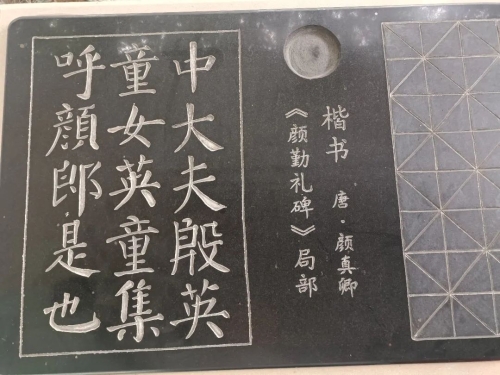 中大夫殷英
童女英童集
呼顔郎是也
楷书 唐·颜真卿
《颜勤礼碑》局部